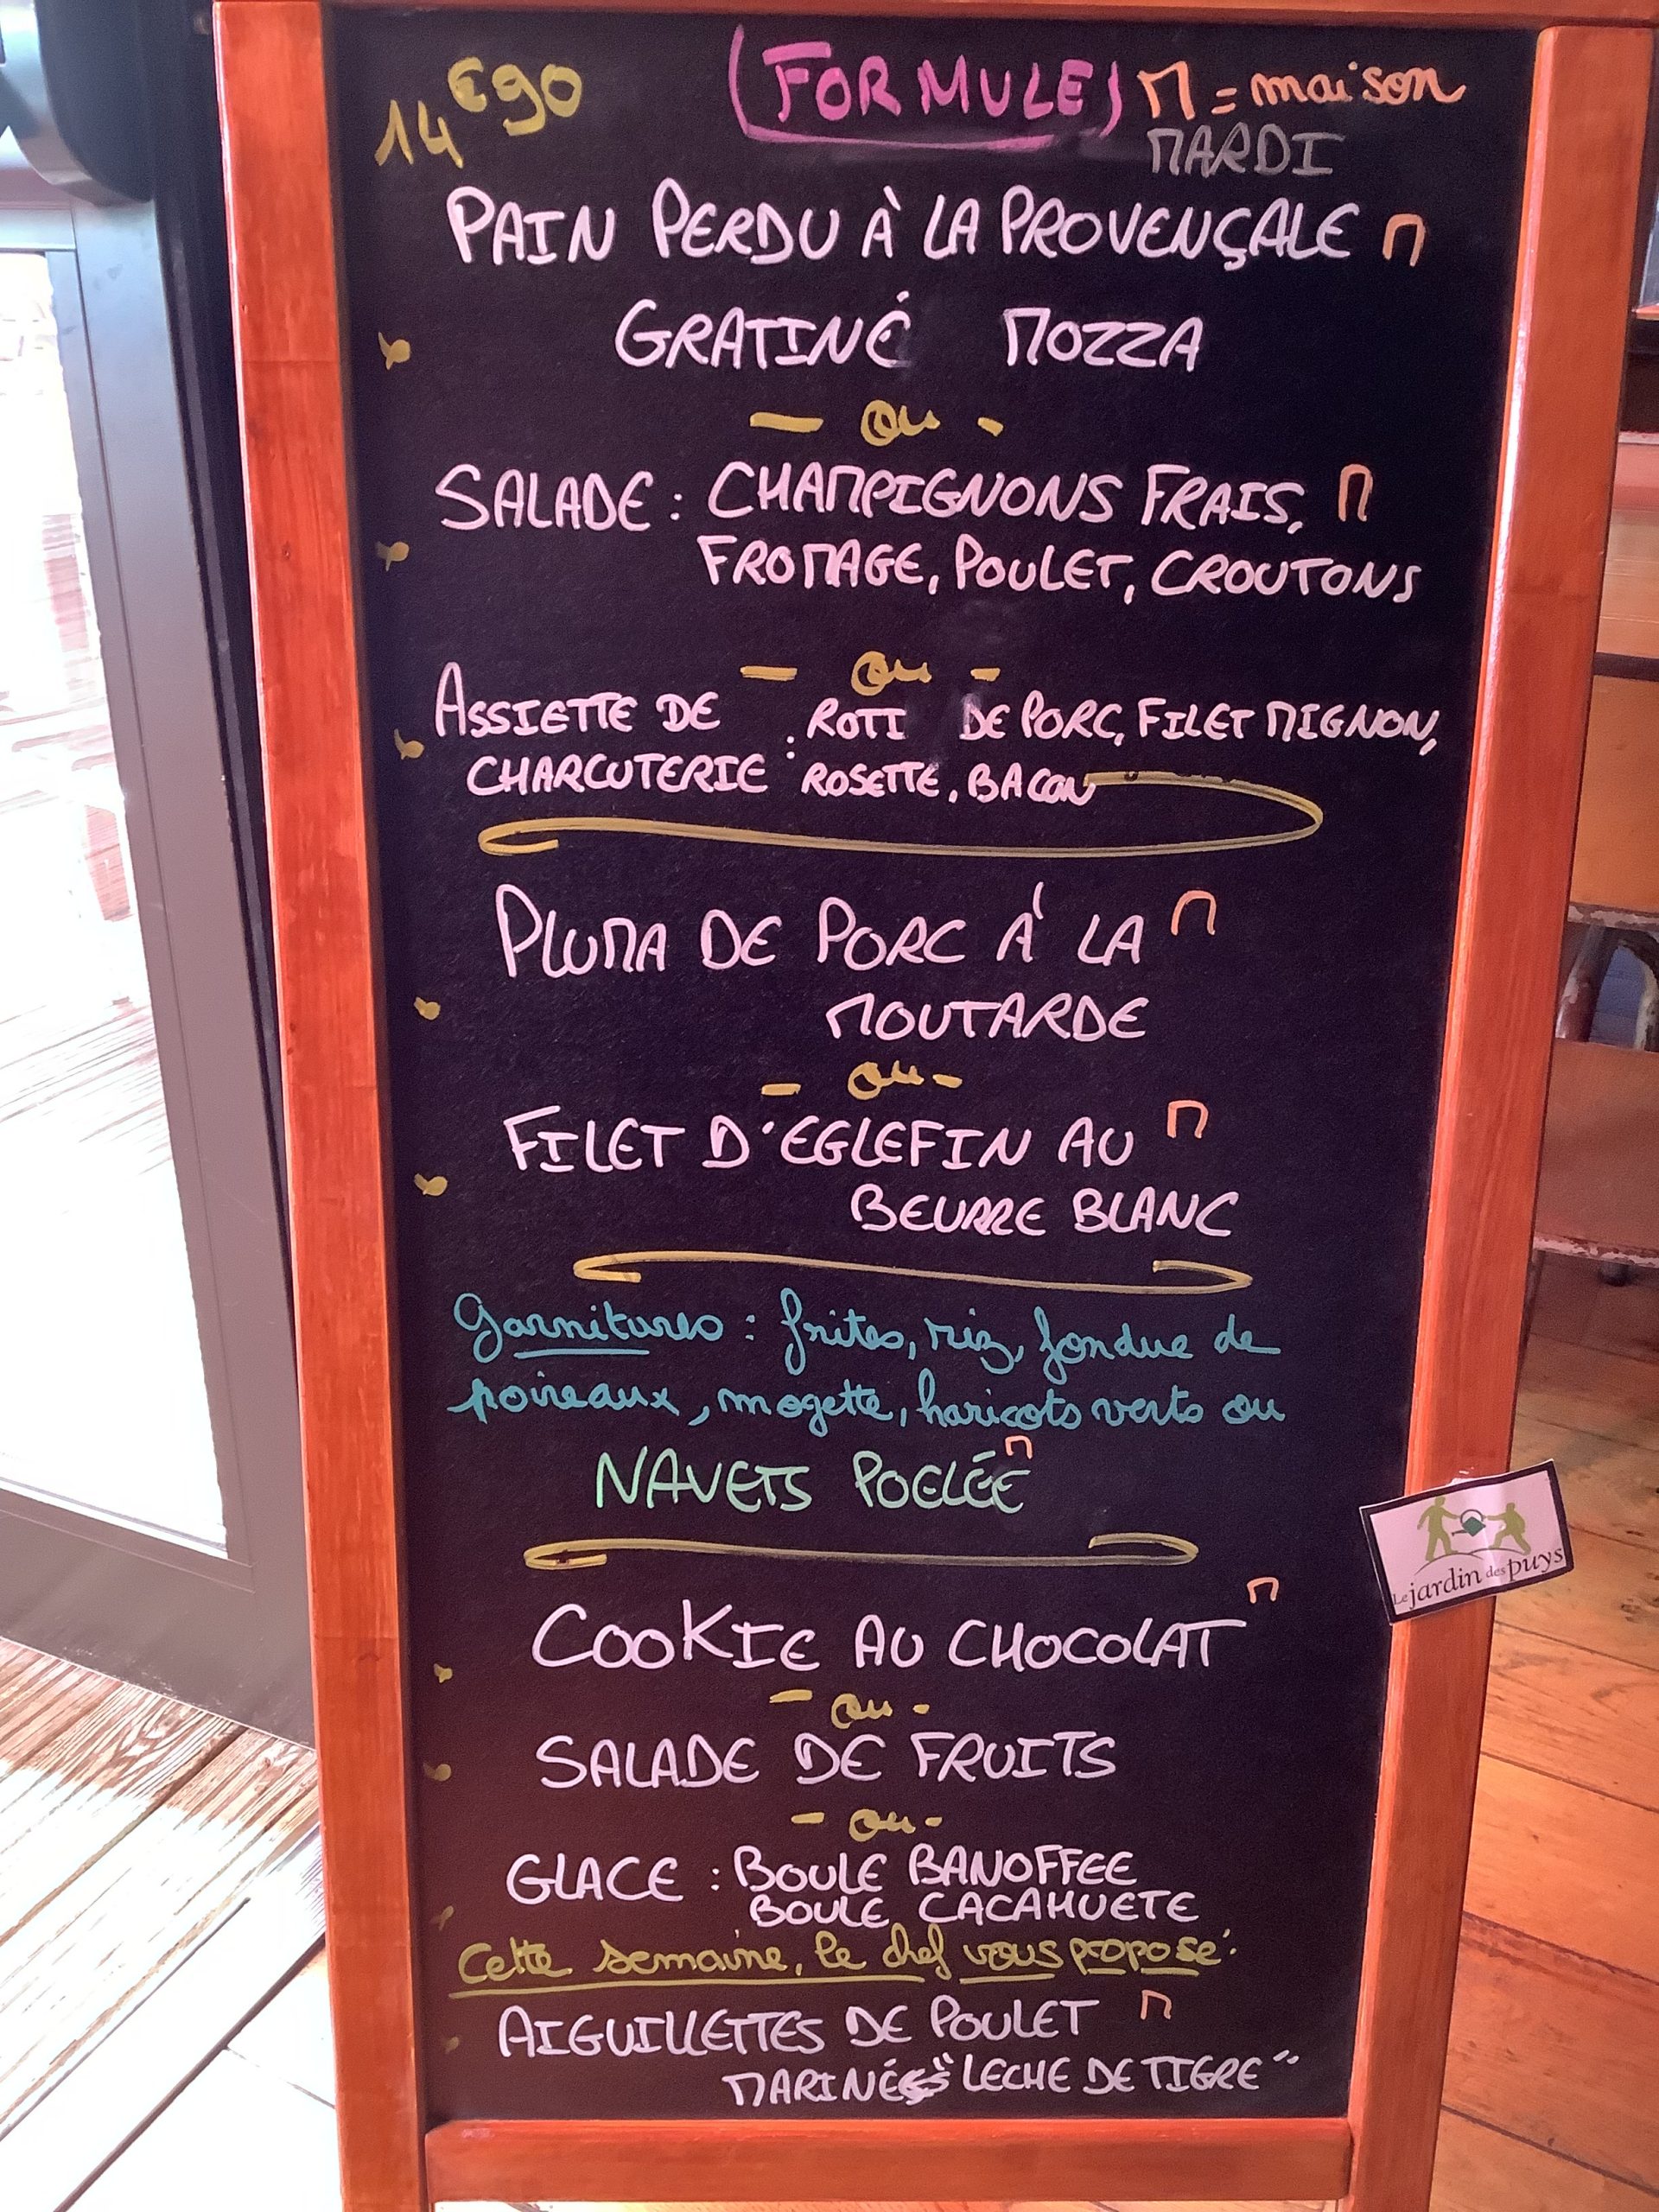 14€90 (FORMULE) M = maison
MARDI
PAIN PERDU À LA PROVENÇALE M
GRATINÉ MOZZA
- ou -
SALADE : CHAMPIGNONS FRAIS, M
FROMAGE, POULET, CROUTONS
- ou -
ASSIETTE DE CHARCUTERIE : ROTI DE PORC, FILET MIGNON,
ROSETTE, BACON
PLUMA DE PORC À LA M
MOUTARDE
- ou -
FILET D'EGLEFIN AU M
BEURRE BLANC
Garnitures : frites, riz, fondue de
poireaux, mogette, haricots verts ou
NAVETS POELÉE M
COOKIE AU CHOCOLAT M
- ou -
SALADE DE FRUITS
- ou -
GLACE : BOULE BANOFFEE
BOULE CACAHUETE
Cette semaine, le chef vous propose :
AIGUILLETTES DE POULET M
MARINÉES "LECHE DE TIGRE"
Le jardin des puys